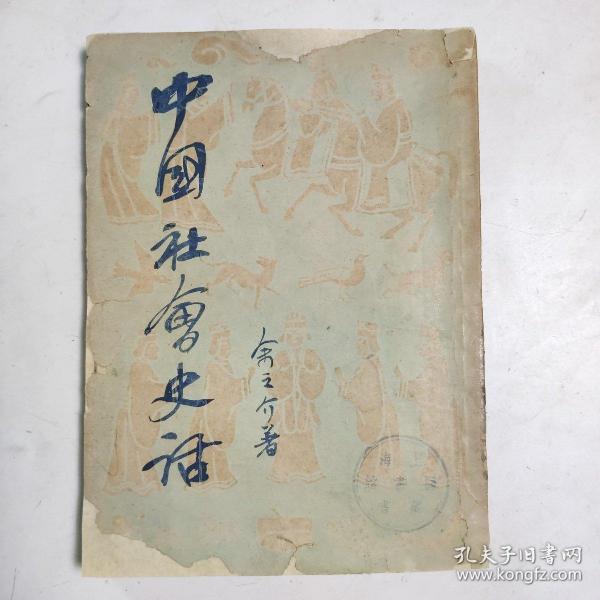 中國社會史話
余之介著
孔夫子旧书网
www.kongfz.com